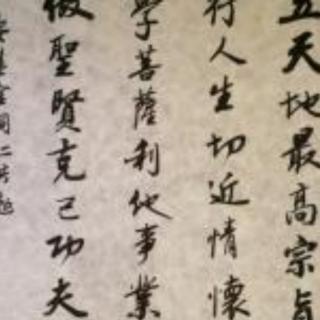 立天地最高宗旨
行人生切近情懷
學菩薩利他事業
做聖賢克己功夫